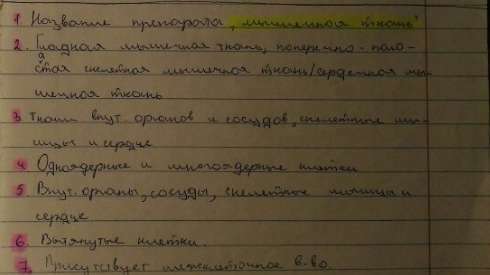 1. Название препарата „мышечная ткань"
2. Гладкая мышечная ткань, поперечно-поло-
стая скелетная мышечная ткань/сердечная мы-
шечная ткань
3. Ткани внут. органов и сосудов, скелетные мы-
шцы и сердце
4. Одноядерные и многоядерные клетки
5. Внут. органы, сосуды, скелетные мышцы и
сердце
6. Вытянутые клетки.
7. Присутствует межклеточное в-во